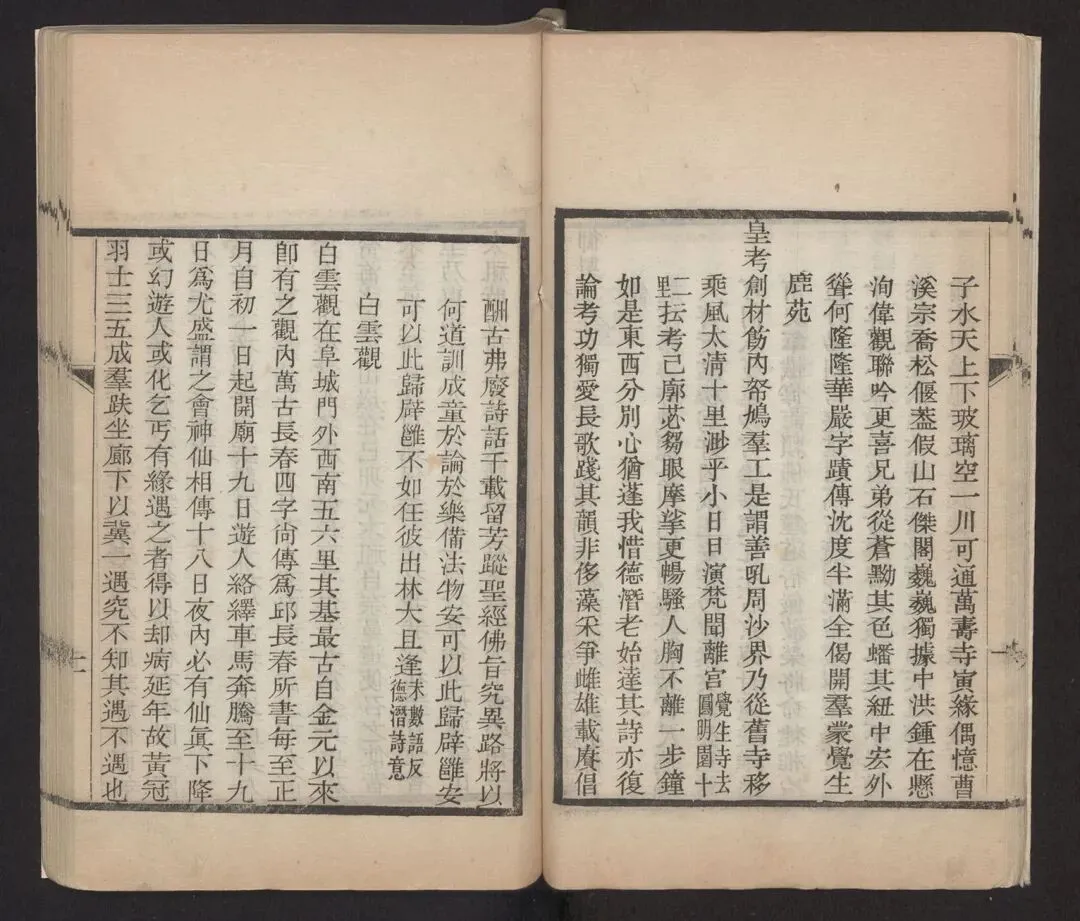 子水天上下玻璃空一川可通萬壽寺寅緣偶憶曹
溪宗喬松偃葢假山石傑閣巍巍獨據中洪鍾在懸
洵偉觀聯吟更喜兄弟從蒼黝其色蟠其紐中宏外
聳何隆隆華嚴字蹟傳沈度半滿全偈開羣蒙覺生
鹿苑
皇考創材飭內帑鳩羣工是謂善吼周沙界乃從舊寺移
乘風太清十里渺乎小日日演梵聞離宮覺生寺去圓明園十
二里坛考己廓苾芻眼摩挲更暢騷人胸不離一步鐘
如是東西分別心猶蓬我惜德潛老始達其詩亦復
論考功獨愛長歌踐其韻非侈藻采爭雌雄載賡倡
酬古弗廢詩話千載留芳蹤聖經佛旨究異路將以
何道訓成童於論於樂備法物安可以此歸辟雝安
可以此歸辟雝不如任彼出林大且逢末數語反德潛詩意
白雲觀
白雲觀在阜城門外西南五六里其基最古自金元以來
卽有之觀內萬古長春四字尙傳爲邱長春所書每至正
月自初一日起開廟十九日遊人絡繹車馬奔騰至十九
日爲尤盛謂之會神仙相傳十八日夜內必有仙眞下降
或幻遊人或化乞丐有緣遇之者得以却病延年故黃冠
羽士三五成羣趺坐廊下以冀一遇究不知其遇不遇也
十一